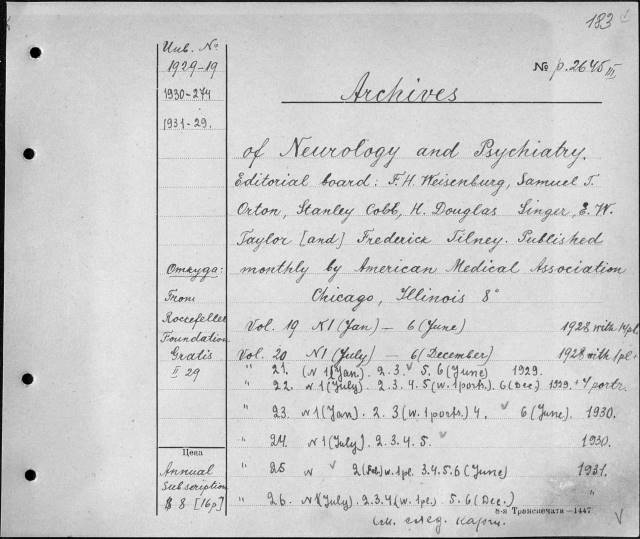 183
Инв. №
1929-19
1930-274
1931-29.
№ p. 2645 III
Archives
of Neurology and Psychiatry.
Editorial board: F.H. Weisenburg, Samuel T.
Orton, Stanley Cobb, H. Douglas Singer, E.W.
Taylor [and] Frederick Tilney. Published
monthly by American Medical Association
Chicago, Illinois 8°
Откуда:
From
Rockefeller
Foundation
Gratis
II 29
Vol. 19 N1 (Jan) – 6 (June) 1928 with 14 pl.
Vol. 20 N1 (July) – 6 (December) 1928 with 1 pl.
" 21. (N 1 (Jan). 2. 3. v 5. 6 (June) 1929.
" 22. N 1 (July). 2. 3. 4. 5 (w. 1 portr.). 6 (Dec) 1929. + 4 portr.
" 23. N 1 (Jan). 2. 3 (w. 1 portr.) 4. v 6 (June). 1930.
" 24. N 1 (July). 2. 3. 4. 5. v 1930.
" 25 N v 2 (Feb.) w. 1 pl. 3. 4. 5. 6 (June) 1931.
" 26. N 1 (July). 2. 3. 4 (w. 1 pl.) 5. 6 (Dec.) "
Цена
Annual
Subscription
$ 8 [16 p]
8-я Транспечати—1447
См. след. карт.